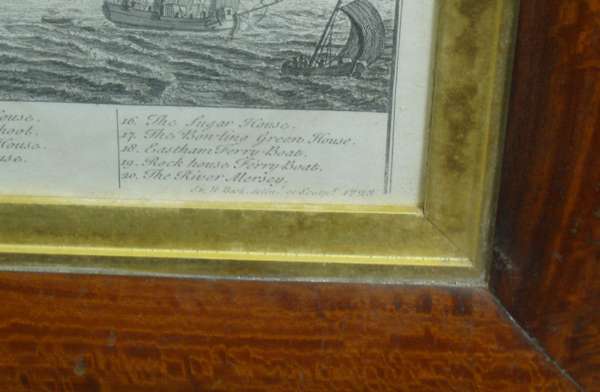 ouse.
hool.
House.
use.
16. The Sugar House.
17. The Bowling Green House.
18. Eastham Ferry Boat.
19. Rock house Ferry Boat.
20. The River Mersey.
Buck delin. et Sculp. 1728